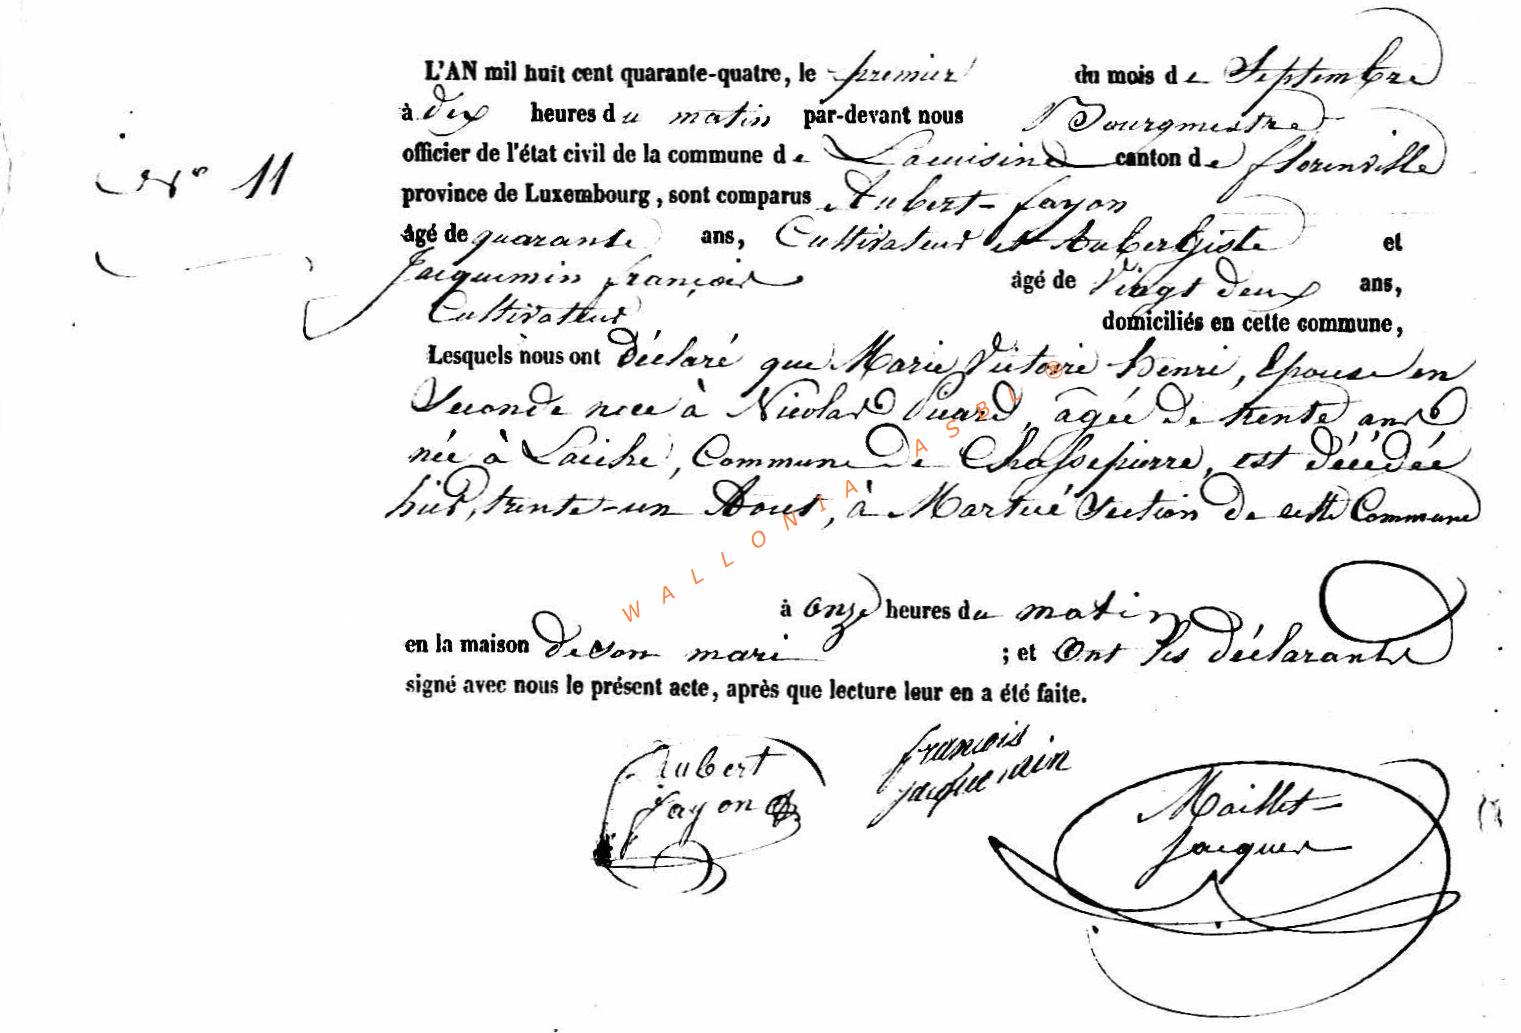 L'AN mil huit cent quarante-quatre, le premier du mois de Septembre
à dix heures du matin par-devant nous Bourgmestre
officier de l'état civil de la commune de Lacuisine canton de florenville
N° 11
province de Luxembourg, sont comparus Aubert-fayon
âgé de quarante ans, Cultivateur et Aubergiste et
Jacquemin françois âgé de Vingt deux ans,
Cultivateur domiciliés en cette commune,
Lesquels nous ont déclaré que Marie Victoire henri, Epouse en
Seconde noce à Nicolas, âgée de trente ans
née à Laiche, Commune de Chassepierre, est décédée
hier, trente-un Aout, à Martué Section de cette Commune
à onze heures du matin
en la maison de son mari ; et ont les déclarants
signé avec nous le présent acte, après que lecture leur en a été faite.
Aubert
fayon
francois
jacquemin
Maillet-
Jacques
WALLONIA ASBL ®